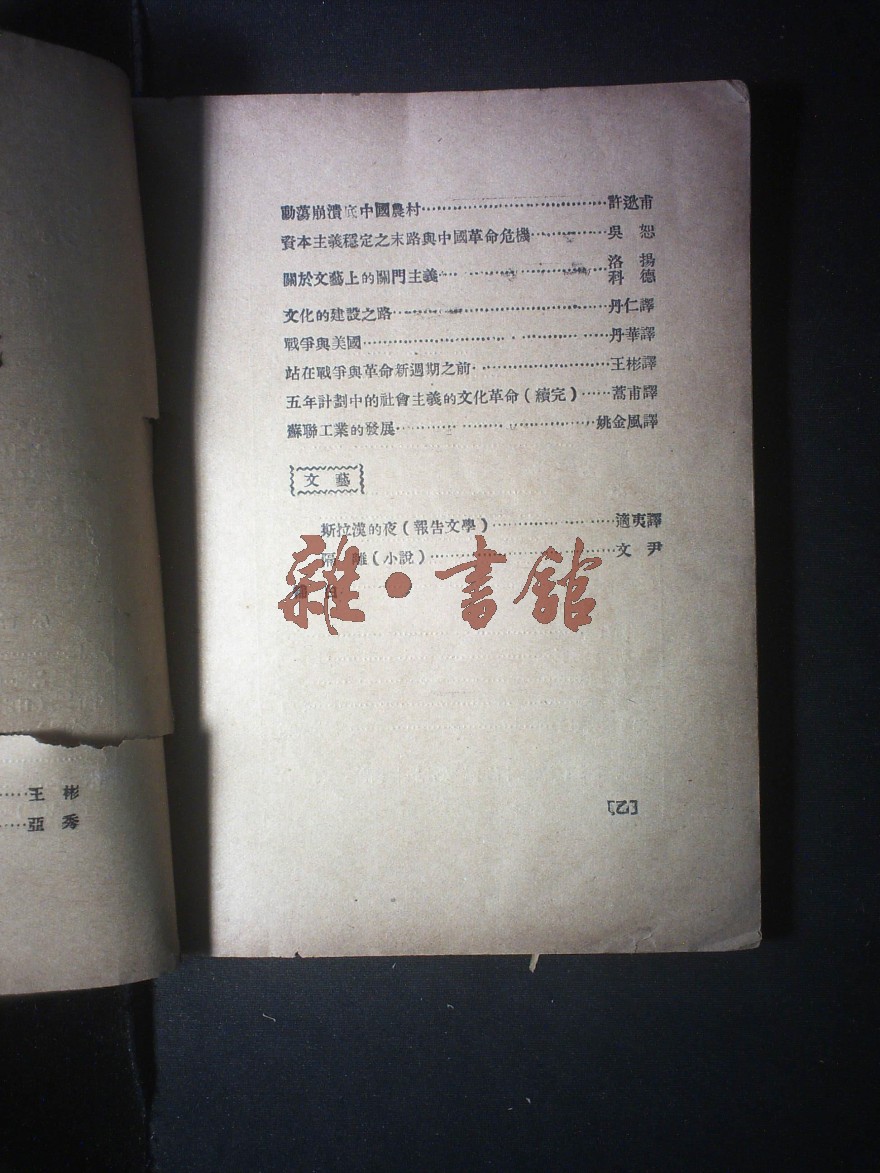 動蕩崩潰底中國農村……許逖甫
資本主義穩定之末路與中國革命危機……吳 恕
關於文藝上的關門主義……洛 揚
科 德
文化的建設之路……丹仁譯
戰爭與美國……丹華譯
站在戰爭與革命新週期之前……王彬譯
五年計劃中的社會主義的文化革命(續完)……蒿甫譯
蘇聯工業的發展……姚金風譯
文 藝
斯拉漢的夜(報告文學)……適夷譯
隔 離(小說)……文 尹
雜·書館
[2]
……王 彬
……亞 秀